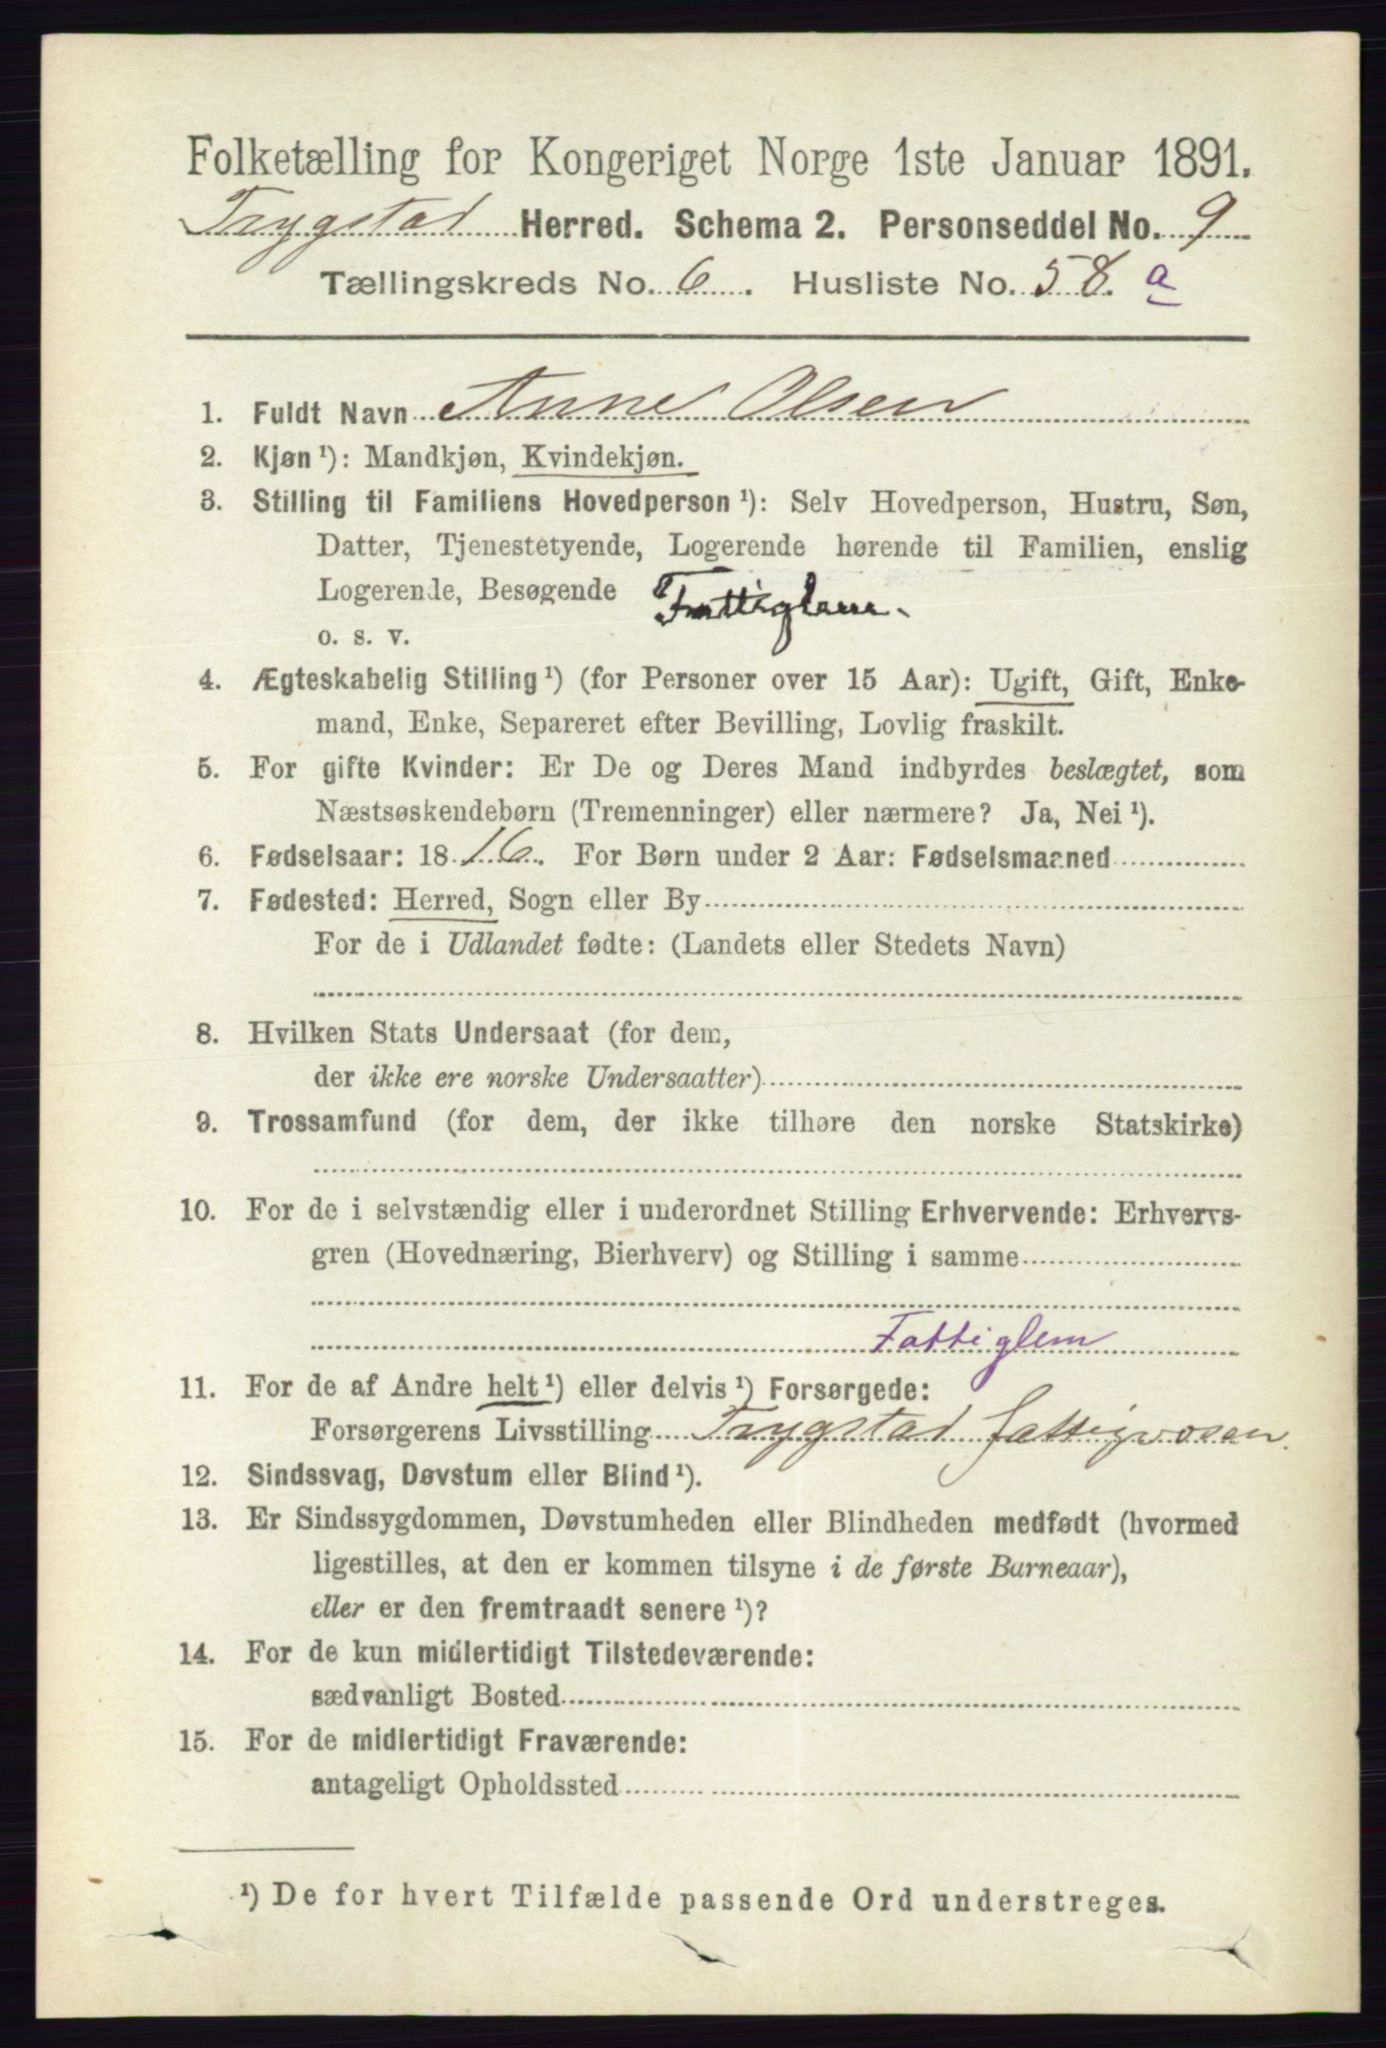 Folketælling for Kongeriget Norge 1ste Januar 1891.
Trygstad Herred. Schema 2. Personseddel No. 9
Tællingskreds No. 6. Husliste No. 58. a
1. Fuldt Navn Anne Olsen
2. Kjøn ¹): Mandkjøn, Kvindekjøn.
3. Stilling til Familiens Hovedperson ¹): Selv Hovedperson, Hustru, Søn,
Datter, Tjenestetyende, Logerende hørende til Familien, enslig
Logerende, Besøgende Fattiglem.
o. s. v.
4. Ægteskabelig Stilling ¹) (for Personer over 15 Aar): Ugift, Gift, Enke-
mand, Enke, Separeret efter Bevilling, Lovlig fraskilt.
5. For gifte Kvinder: Er De og Deres Mand indbyrdes beslægtet, som
Næstsøskendebørn (Tremenninger) eller nærmere? Ja, Nei ¹).
6. Fødselsaar: 1816. For Børn under 2 Aar: Fødselsmaaned
7. Fødested: Herred, Sogn eller By
For de i Udlandet fødte: (Landets eller Stedets Navn)
8. Hvilken Stats Undersaat (for dem,
der ikke ere norske Undersaatter)
9. Trossamfund (for dem, der ikke tilhøre den norske Statskirke)
10. For de i selvstændig eller i underordnet Stilling Erhvervende: Erhvervs-
gren (Hovednæring, Bierhverv) og Stilling i samme
Fattiglem
11. For de af Andre helt ¹) eller delvis ¹) Forsørgede:
Forsørgerens Livsstilling Trygstad fattigvæsen.
12. Sindssvag, Døvstum eller Blind ¹).
13. Er Sindssygdommen, Døvstumheden eller Blindheden medfødt (hvormed
ligestilles, at den er kommen tilsyne i de første Barneaar),
eller er den fremtraadt senere ¹)?
14. For de kun midlertidigt Tilstedeværende:
sædvanligt Bosted
15. For de midlertidigt Fraværende:
antageligt Opholdssted
¹) De for hvert Tilfælde passende Ord understreges.